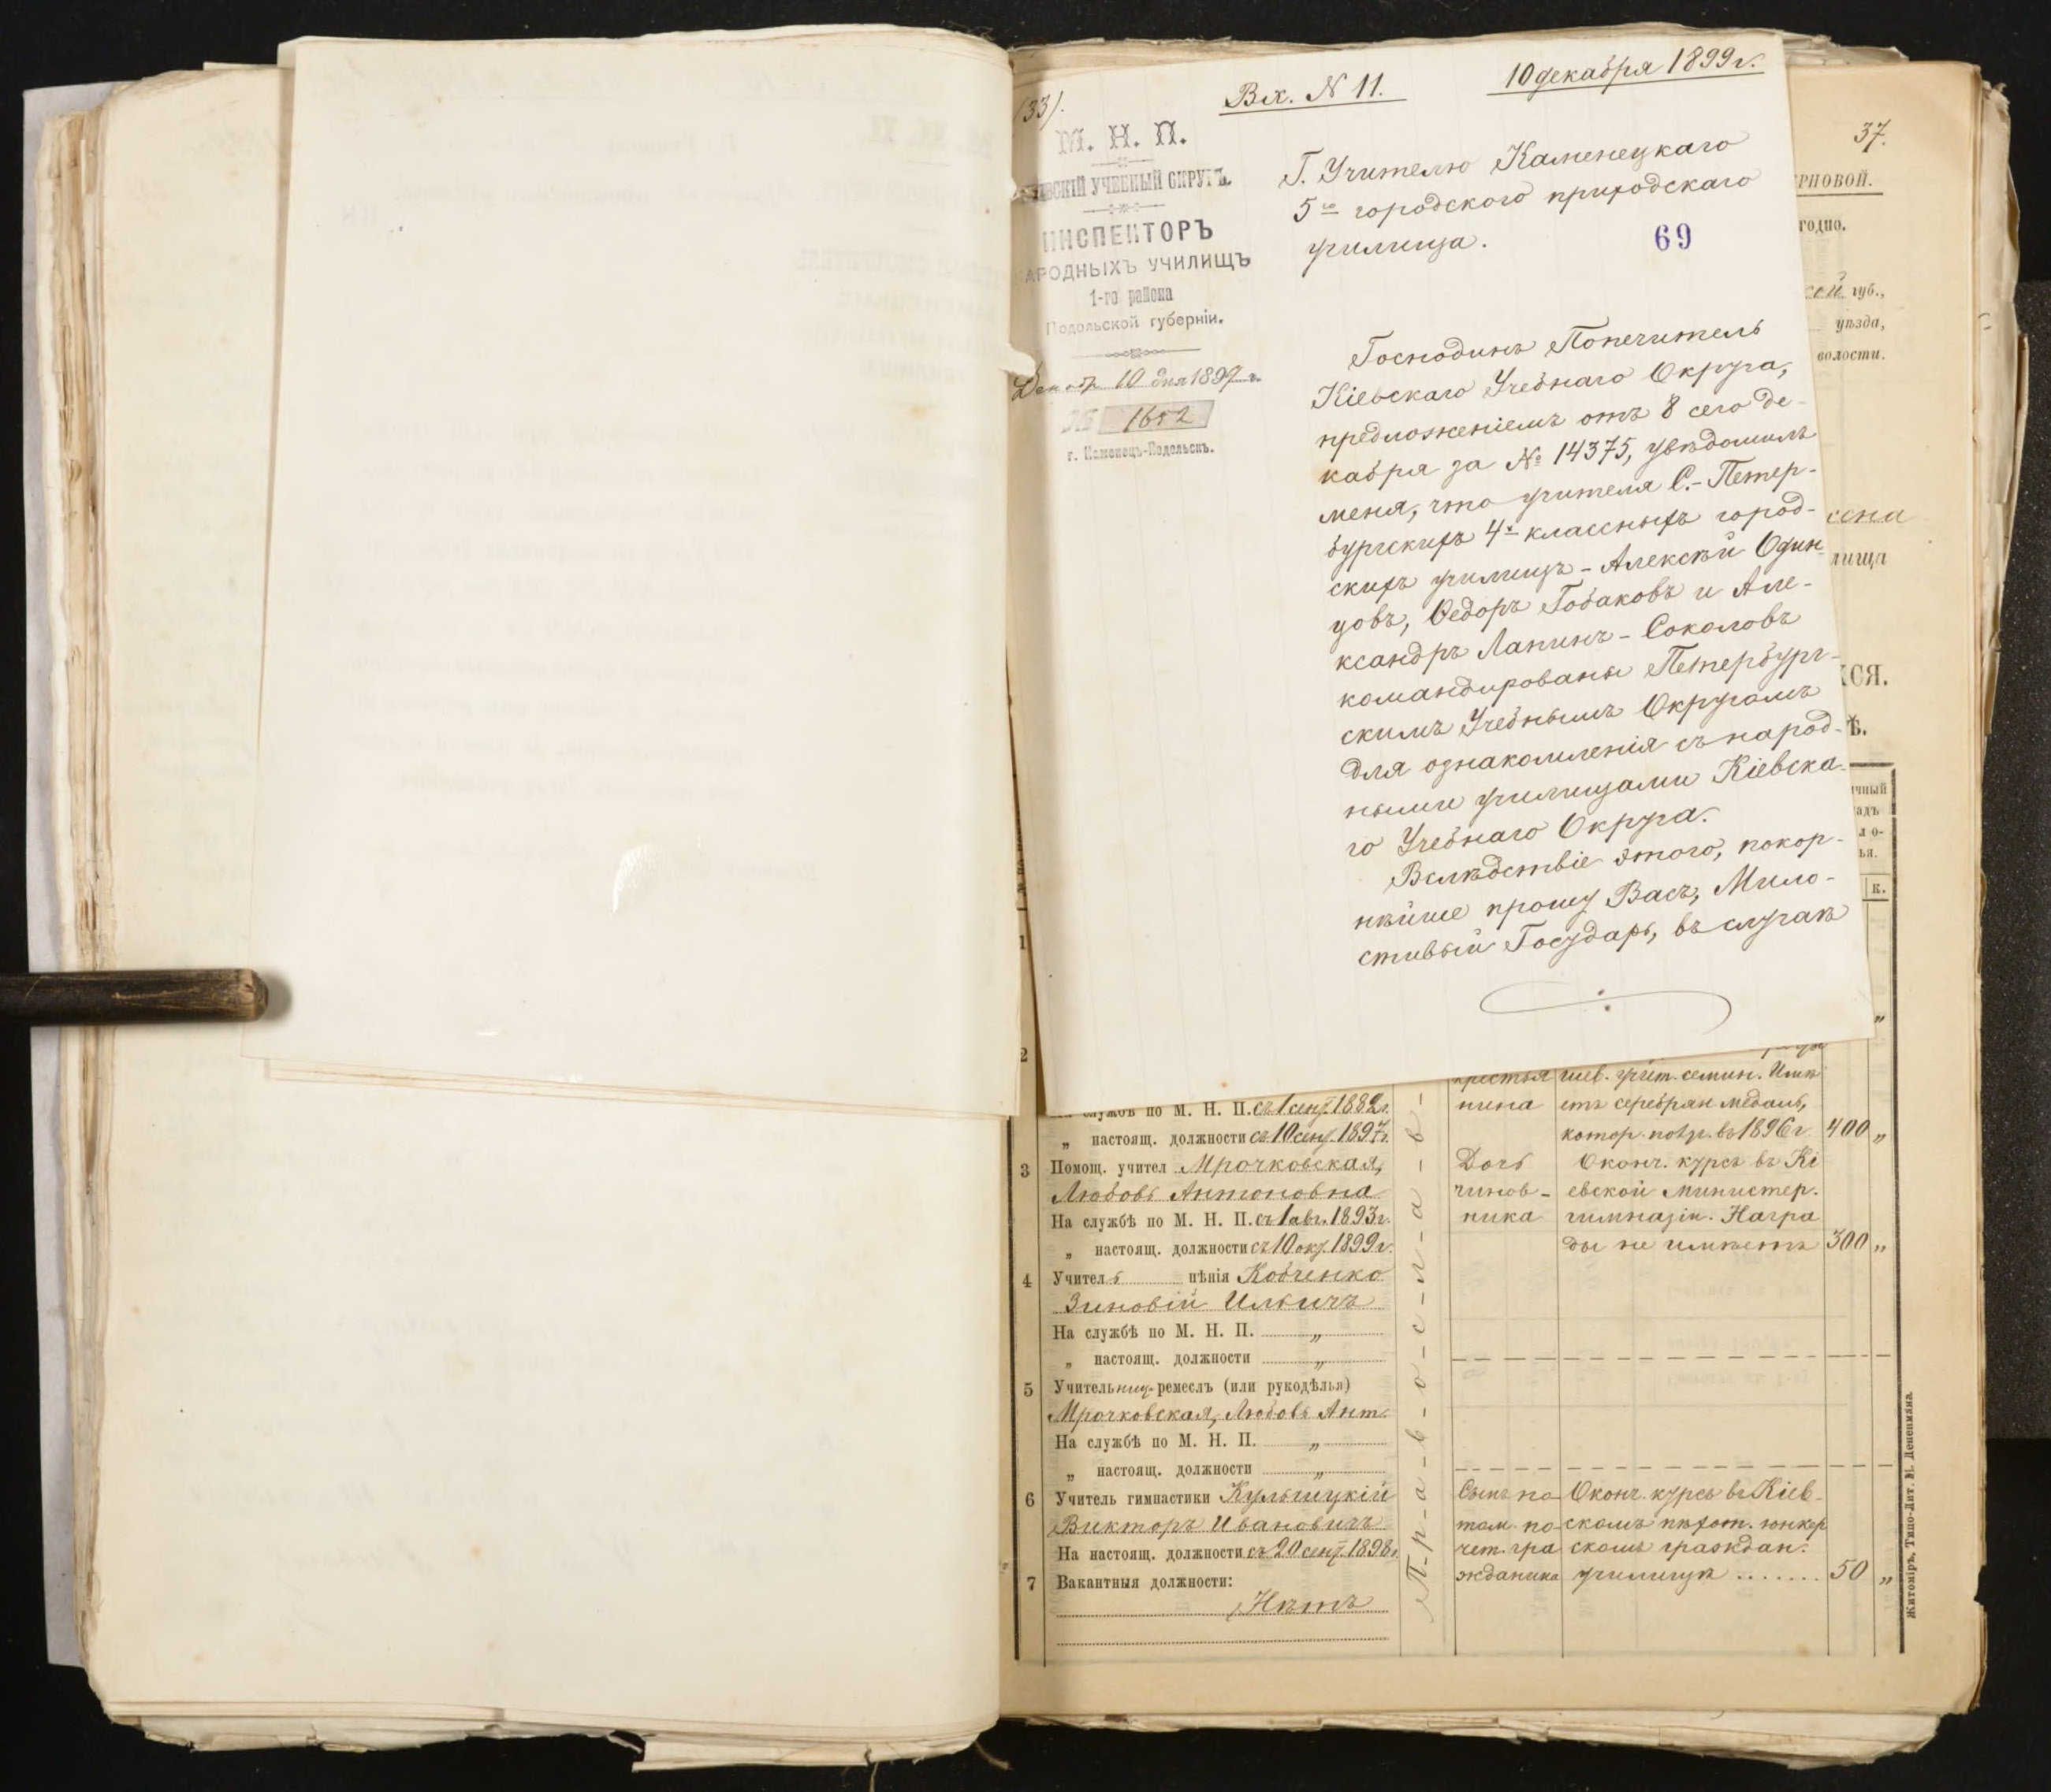 (33).
Вх. N 11.
10 декабря 1899 г.
М. Н. П.
КІЕВСКІЙ УЧЕБНЫЙ ОКРУГЪ.
ИНСПЕКТОРЪ
НАРОДНЫХЪ УЧИЛИЩЪ
1-го района
Подольской губерніи.
Декабр 10 дня 1899 г.
№ 1652
г. Каменецъ-Подольскъ.
Г. Учителю Каменецкаго
5го городского приходскаго
училища.
69
Господинъ Попечитель
Кіевскаго Учебнаго Округа,
предложеніемъ отъ 8 сего де-
кабря за № 14375, увѣдомилъ
меня, что учителя С.-Петер-
бургскихъ 4х классныхъ город-
скихъ училищъ - Алексѣй Один-
цовъ, Ѳедоръ Тобаковъ и Але-
ксандръ Лапинъ - Соколовъ
командированы Петербург-
скимъ Учебнымъ Округомъ
для ознакомленія съ народ-
ными училищами Кіевска-
го Учебнаго Округа.
Вслѣдствіе этого, покор-
нѣйше прошу Васъ, Мило-
стивый Государь, въ случаѣ
37.
РНОВОЙ.
годно.
ской губ.,
уѣзда,
волости.
сена
лища
ХСЯ.
Ѣ.
ичный
адъ
л о-
ья.
к.
1
„
2
крестья
нина
шев. учит. семин. Имѣ
етъ серебрян медаль,
котор. пол. въ 1896 г. 400 „
службѣ по М. Н. П. съ 1 сент. 1882 г.
„ настоящ. должности съ 10 сент. 1897 г.
3 Помощ. учител Мрочковская,
Любовь Антоновна
На службѣ по М. Н. П. съ 1 авг. 1893 г.
„ настоящ. должности съ 10 окт. 1899 г.
Дочь
чинов-
ника
Оконч. курсъ въ Кі
евской министер.
гимназіи. Награ
ды не имѣетъ 300 „
4 Учитель пѣнія Кобченко
Зиновій Ильичъ
На службѣ по М. Н. П. „
„ настоящ. должности „
5 Учительниц. ремеслъ (или рукодѣлья)
Мрочковская, Любовь Ант.
На службѣ по М. Н. П. „
„ настоящ. должности „
6 Учитель гимнастики Кульчицкій
Викторъ Ивановичъ
На настоящ. должности съ 20 сент. 1898 г.
Сынъ по
том. по-
чет. гра
жданина
Оконч. курсъ въ Кіев-
скомъ пѣхот. юнкер
скомъ граждан.
училищѣ ....... 50 „
7 Вакантныя должности:
Нѣтъ
П-р-а-в-о-с-л-а-в-
Житоміръ, Типо-Лит. М. Дененмана.